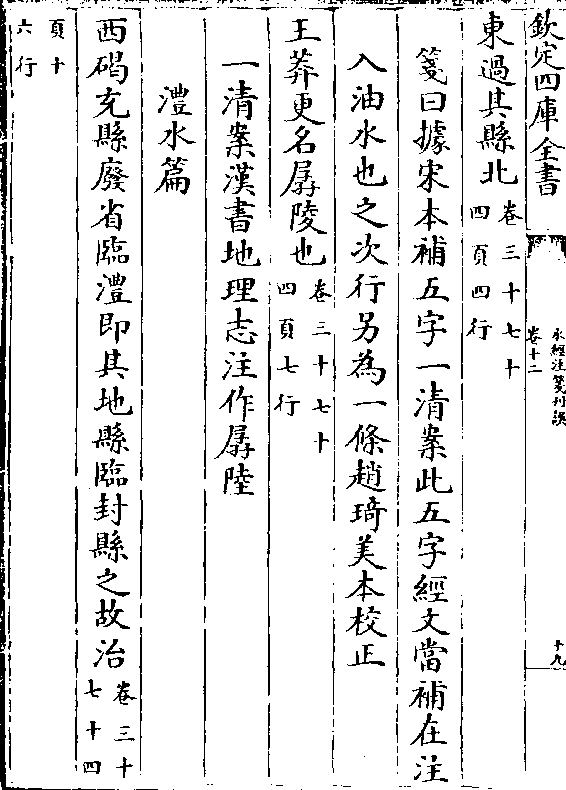 欽定四庫全書
水經注箋刊誤
卷十二
十九
東過其縣北卷三十七十四頁四行
箋曰據宋本補五字一清案此五字經文當補在注
入油水也之次行另為一條趙琦美本校正
王莽更名孱陵也卷三十七十四頁七行
一清案漢書地理志注作孱陸
澧水篇
西碣充縣廢省臨澧即其地縣臨封縣之故治卷三十七十四
頁十六行